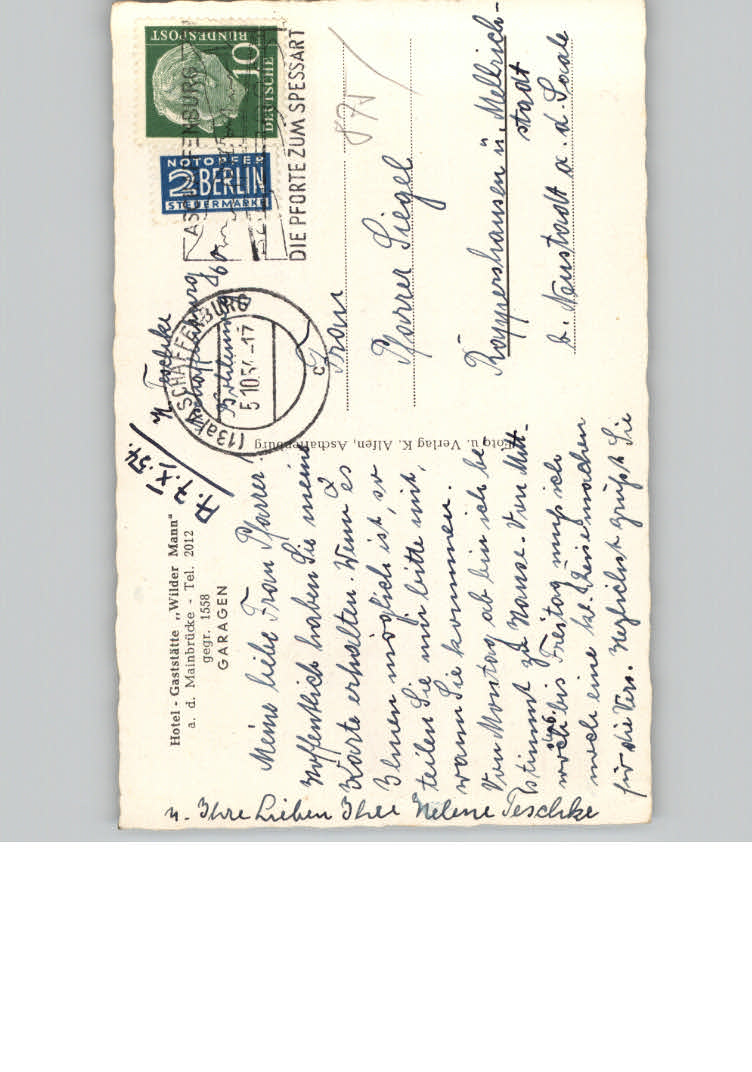 Hotel - Gaststätte „Wilder Mann"
a. d. Mainbrücke - Tel. 2012
gegr. 1558
GARAGEN
A. 7.X.54.
Meine liebe Frau Pfarrer!
Hoffentlich haben Sie meine
Karte erhalten. Wenn es
Ihnen möglich ist, so
teilen Sie mir bitte mit,
wann Sie kommen.
Von Montag ab bin ich be
stimmt zu Hause. Von Mitt-
woch bis Freitag muß ich
noch eine kl. Reise machen
für die Vers. Herzlichst grüßt Sie
u. Ihre Lieben Ihre Helene Teschke
Foto u. Verlag K. Alfen, Aschaffenburg
Teschke
Aschaffenburg
(13a) ASCHAFFENBURG
5.10.54.-17
c
ASCHAFFENBURG
DIE PFORTE ZUM SPESSART
DEUTSCHE
BUNDESPOST
10
NOTOPFER
2 BERLIN
STEUERMARKE
875
Frau
Pfarrer Siegel
Rappershausen ü. Mellrich-
stadt
b. Neustadt a. d. Saale